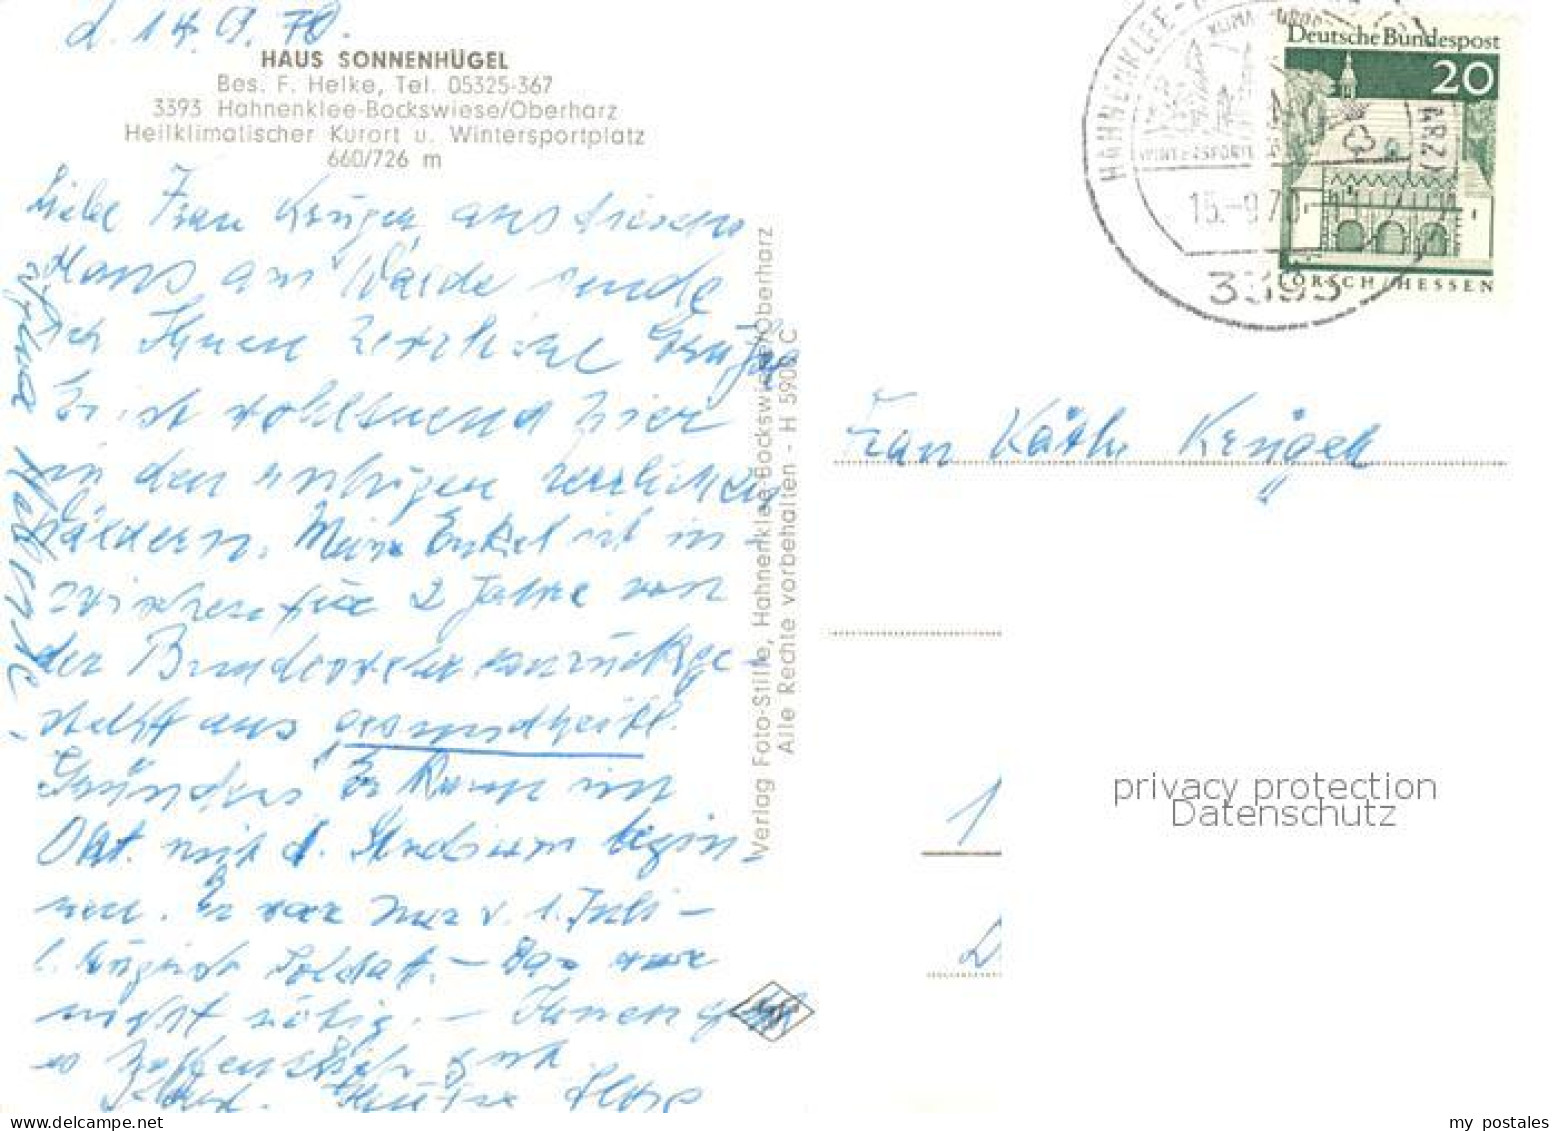 d. 14.9.70.
HAUS SONNENHÜGEL
Bes. F. Helke, Tel. 05325-367
3393 Hahnenklee-Bockswiese/Oberharz
Heilklimatischer Kurort u. Wintersportplatz
660/726 m
Liebe Frau Krüger, aus diesem
Haus am Walde sende
ich Ihnen herzliche Grüße
Es ist wohltuend hier
in den ruhigen herrlichen
Wäldern. Mein Enkel ist in-
zwischen für 2 Jahre von
der Bundeswehr zurückge-
stellt aus gesundheitl.
Gründen Er kann im
Okt. mit d. Studium begin-
nen. Er war nur v. 1. Juli -
August Soldat. - Das war
nicht nötig. - Ihnen geht
es hoffentlich gut
Verlag Foto-Stille, Hahnenklee-Bockswiese/Oberharz
Alle Rechte vorbehalten - H 590 C
HAHNENKLEE-
WINTERSPORT
15.-9.70
3393
Deutsche Bundespost
20
LORSCH/HESSEN
Frau Käthe Krüger
1
privacy protection
Datenschutz
www.delcampe.net
my_postales